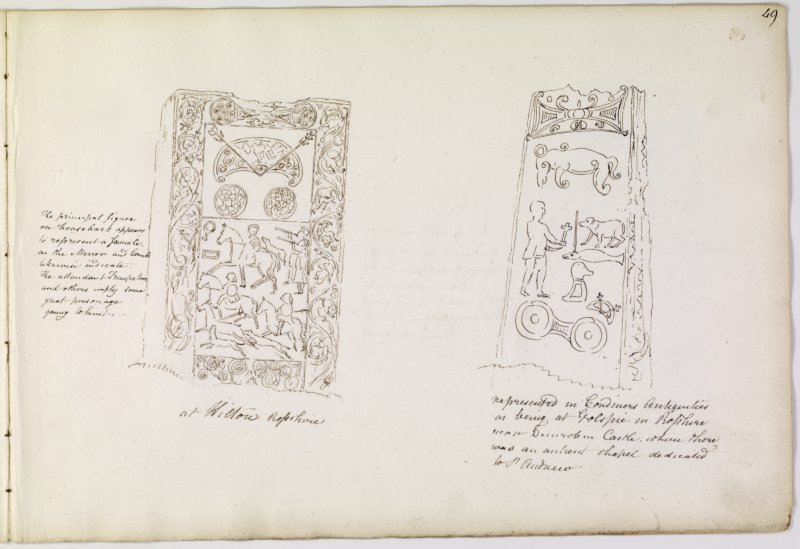 49
The principal figure
on horseback appears
to represent a female,
as the Mirror and Comb
likewise indicate.
The attendant Trumpeters
and others imply some
great personage
going to hunt.
at Hilton Rossshire
represented in Cordiners Antiquities
as being at Golspie in Rossshire
near Dunrobin Castle, where there
was an antient chapel dedicated
to St. Andrew